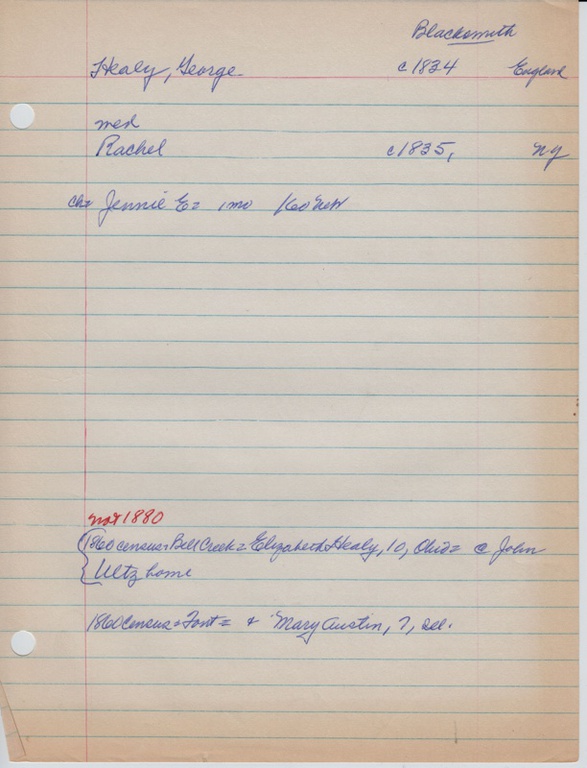 Blacksmith
Healy, George c1834 England
med
Rachel c1835, NY
ch= Jennie E= 1mo
not 1880
1860 census= Bell Creek= Elizabeth Healy, 10, Ohio= @ John
Ultz home
1860 Census= Font= + Mary Austin, 7, Del.